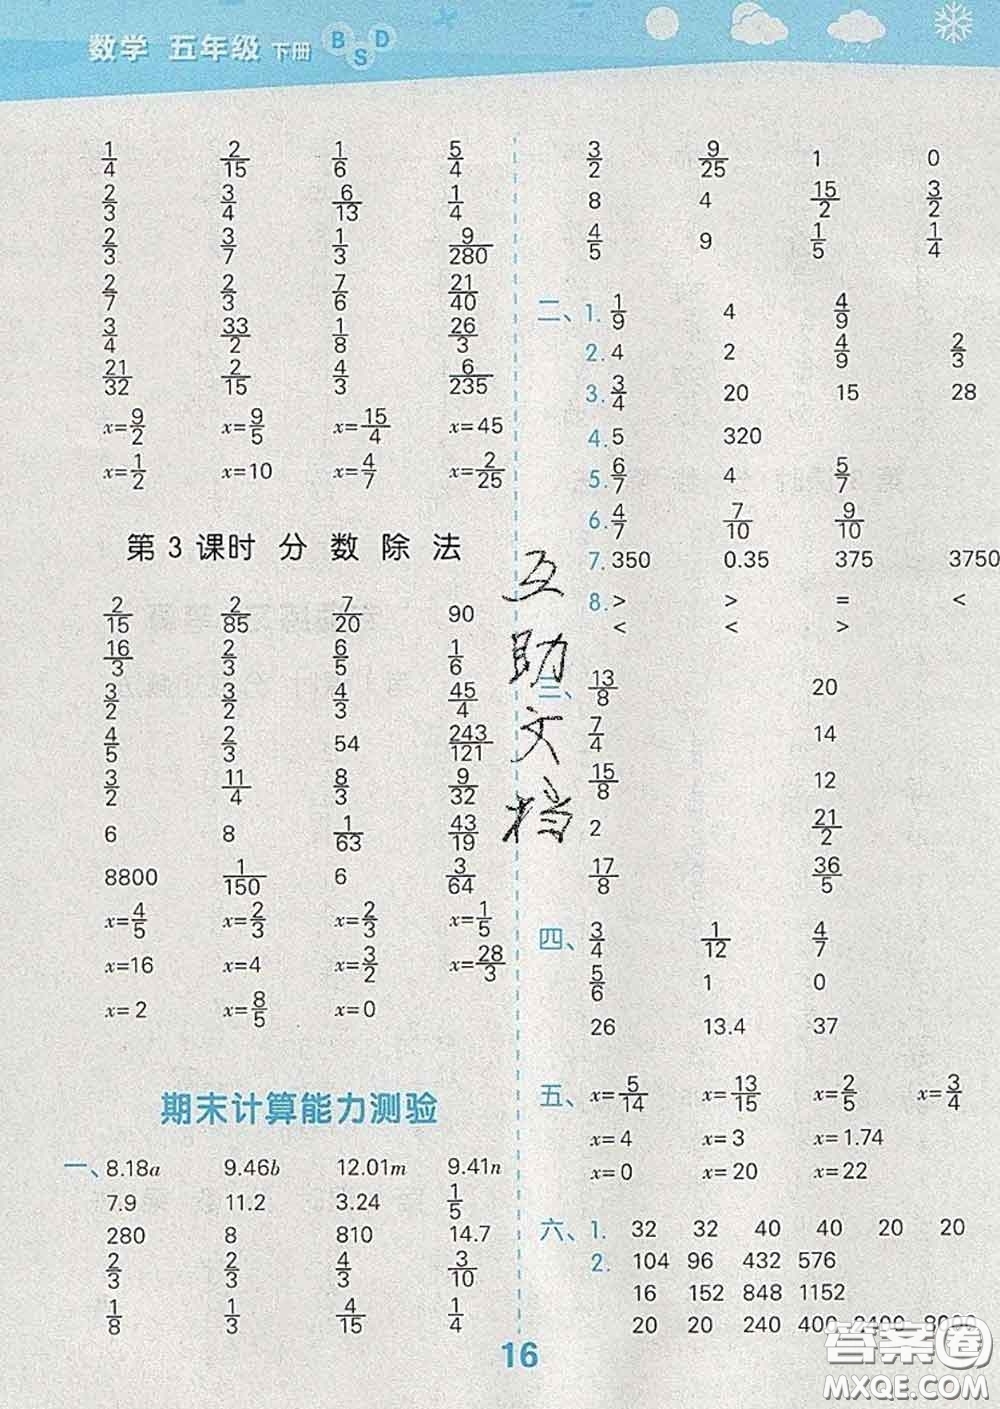 数学 五年级 下册 BSD
1/4 2/15 1/6 5/4
2/3 3/4 6/13 1/4
2/3 3/7 1/3 9/280
2/7 2/3 7/6 21/40
3/4 33/2 1/8 26/3
21/32 2/15 4/3 6/235
x=9/2 x=9/5 x=15/4 x=45
x=1/2 x=10 x=4/7 x=2/25
第3课时 分数除法
2/15 2/85 7/20 90
16/3 2/3 6/5 1/6
3/2 3/2 4/3 45/4
4/5 2/3 54 243/121
3/2 11/4 8/3 9/32
6 8 1/63 43/19
8800 1/150 6 3/64
x=4/5 x=2/3 x=2/3 x=1/5
x=16 x=4 x=3/2 x=28/3
x=2 x=8/5 x=0
期末计算能力测验
一、8.18a 9.46b 12.01m 9.41n
7.9 11.2 3.24 1/5
280 8 810 14.7
2/3 2/3 4/3 3/10
1/8 1/3 4/15 1/4
3/2 9/25 1 0
8 4 15/2 3/2
4/5 9 1/5 1/4
二、1. 1/9 4 4/9
2. 4 2 4/9 2/3
3. 3/4 20 15 28
4. 5 320
5. 6/7 4 5/7
6. 4/7 7/10 9/10
7. 350 0.35 375 3750
8. > > = <
< < >
三、13/8 20
7/4 14
15/8 12
2 21/2
17/8 36/5
四、3/4 1/12 4/7
5/6 1 0
26 13.4 37
五、x=5/14 x=13/15 x=2/5 x=3/4
x=4 x=3 x=1.74
x=0 x=20 x=22
六、1. 32 32 40 40 20 20
2. 104 96 432 576
16 152 848 1152
20 20 240 400 2400 8000
16
互助文档
答案圈
MXQE.COM